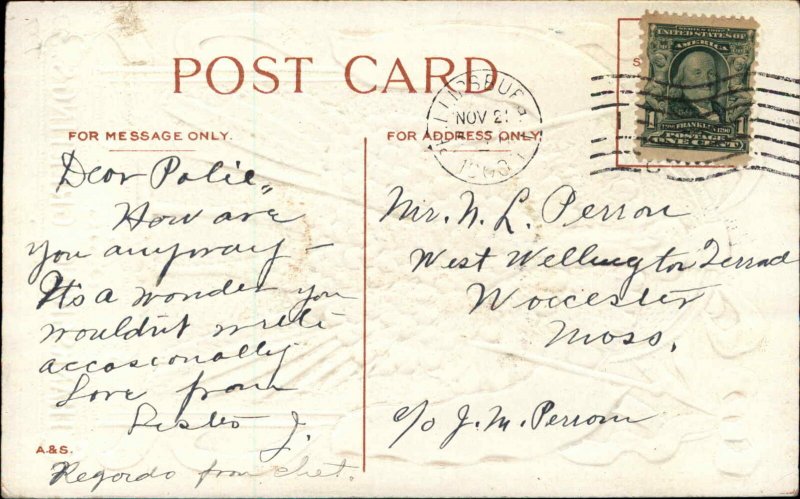 POST CARD
FOR MESSAGE ONLY.
Dear Polie,
How are
you anyway –
It's a wonder you
wouldn't write
accasionally
Love from
J.
A.&S.
Regards from Chet.
NOV 2
FOR ADDRESS ONLY
SERIES 1902
UNITED STATES OF
AMERICA
1 FRANKLIN 1790 1
POSTAGE
ONE CENT
Mr. N. L. Perron
West Wellington
Worcester
Mass.
c/o J. M. Perron